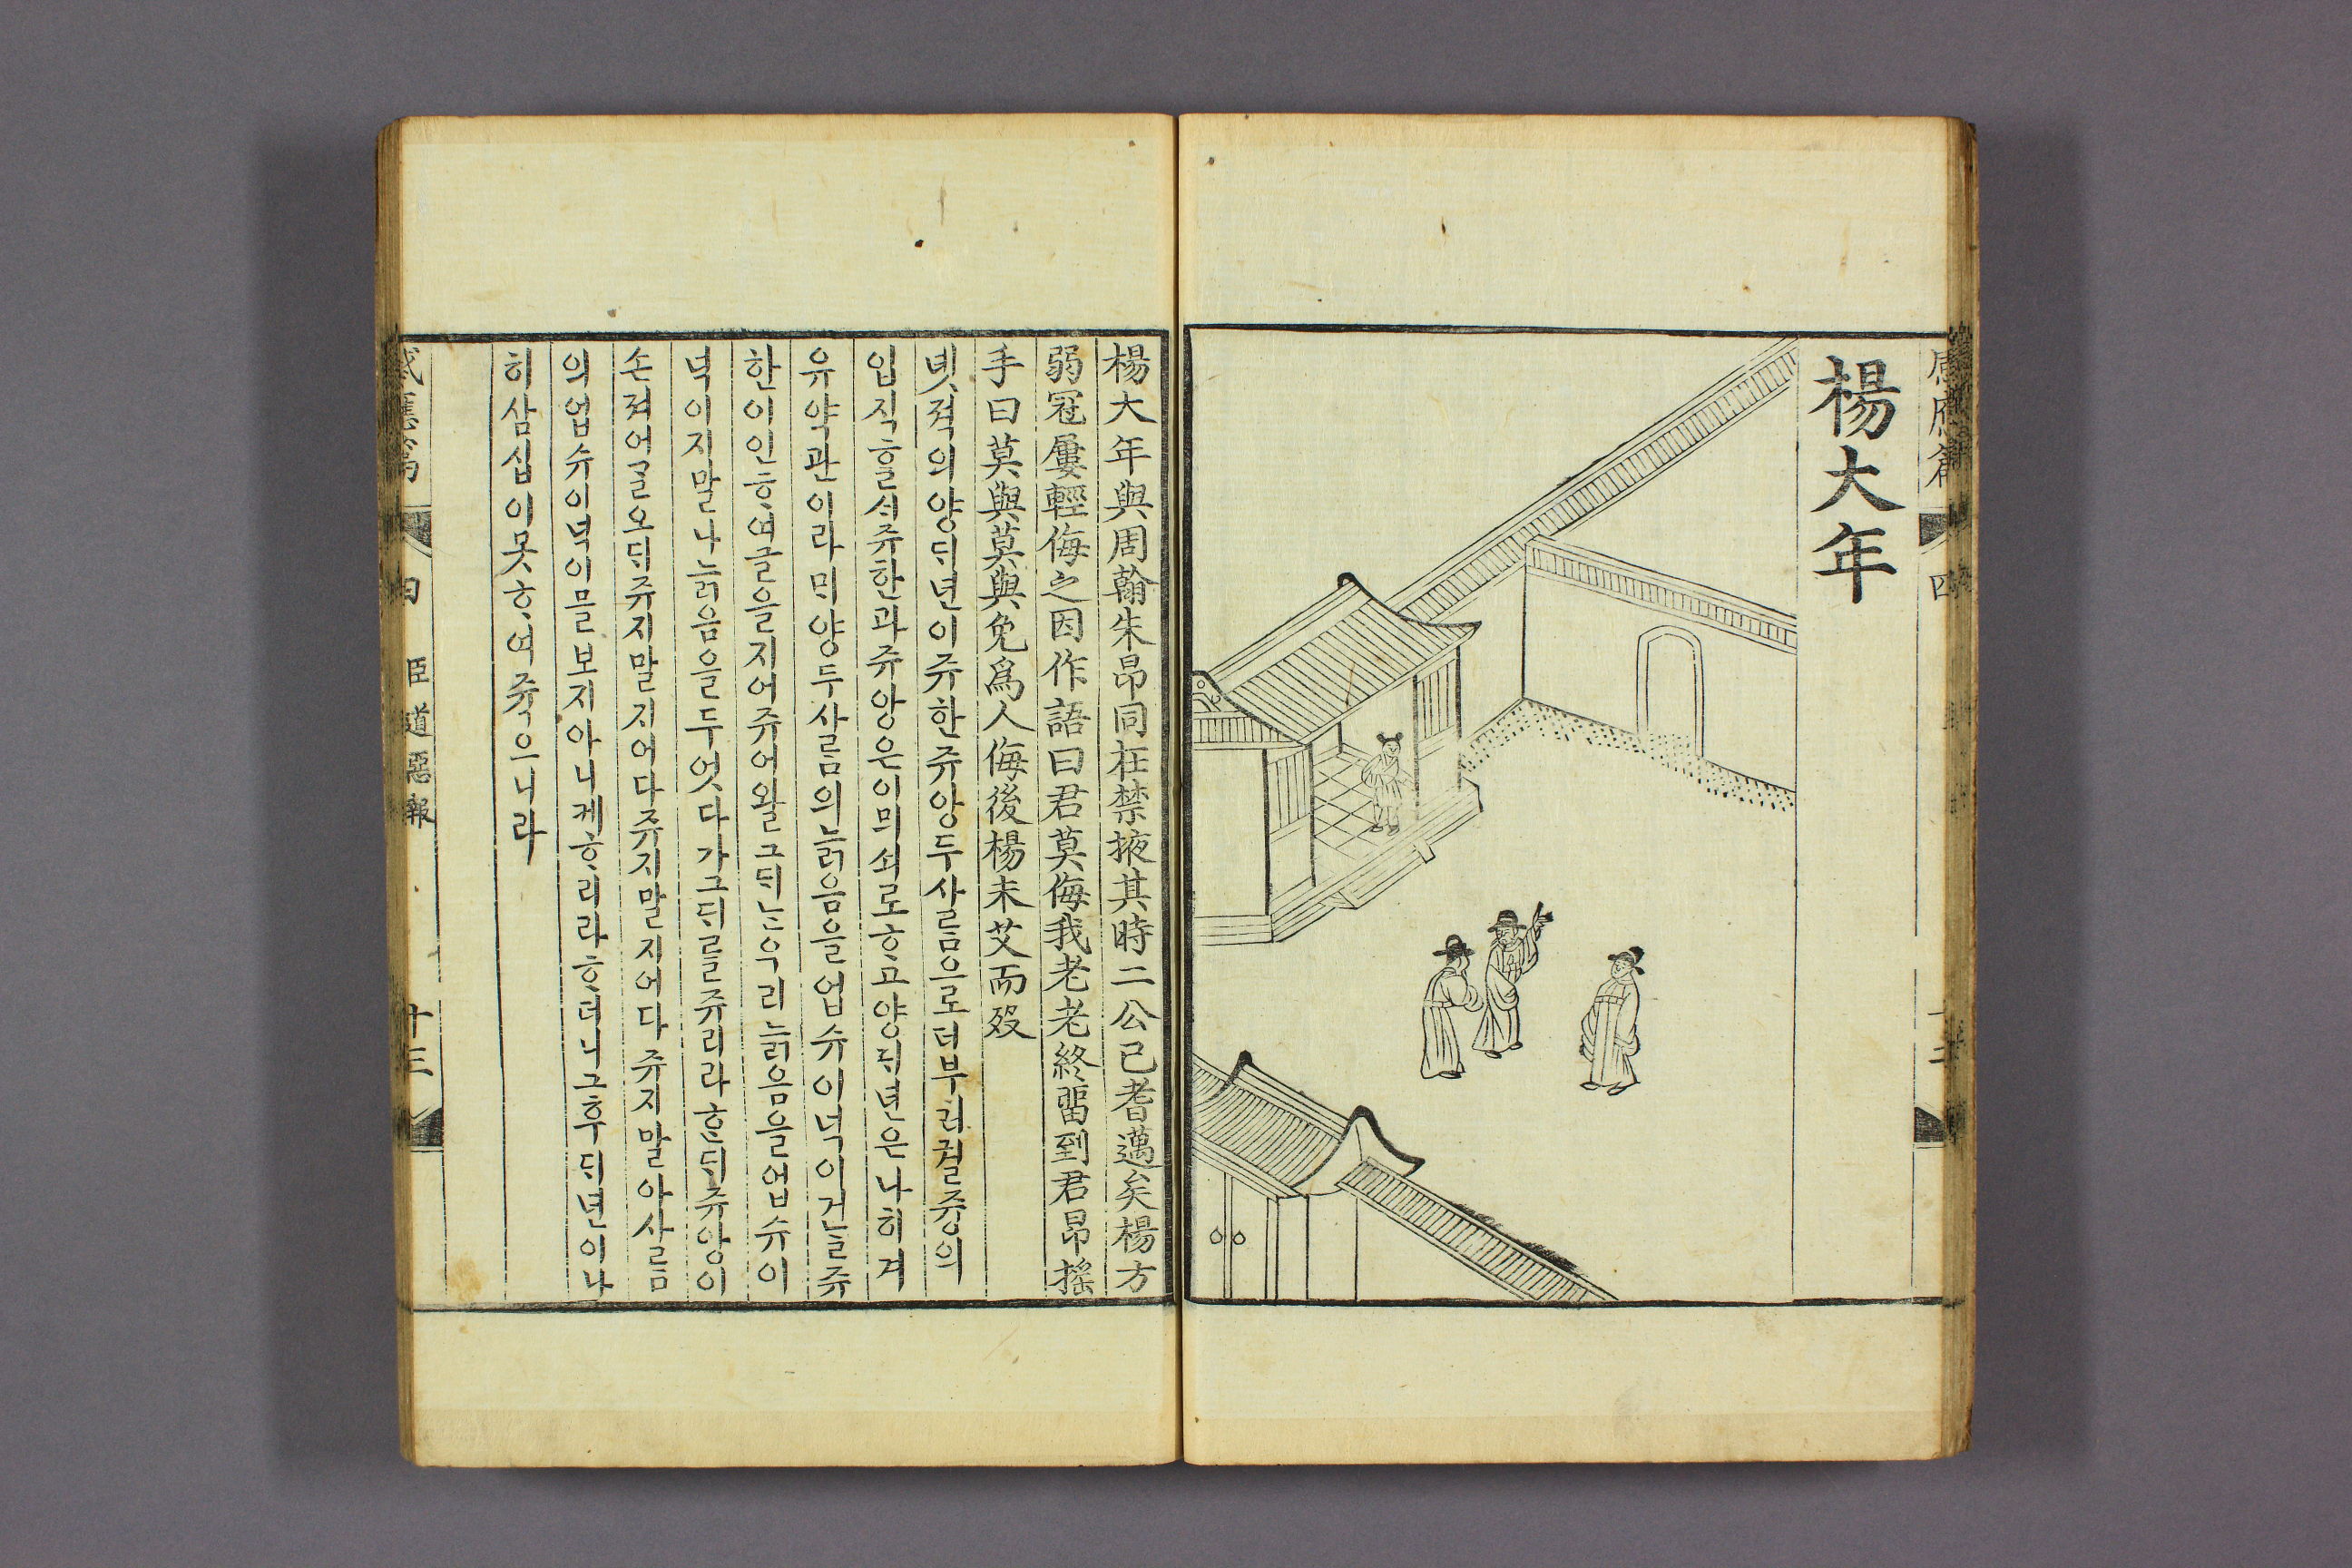 楊大年
楊大年與周翰朱昂同在禁掖其時二公已耆邁矣楊方
弱冠屢輕侮之因作語曰君莫侮我老老終畱到君昂搖
手曰莫與莫與免爲人侮後楊未艾而歿
녯젹의양ᄃᆡ년이쥬한쥬앙두사ᄅᆞᆷ으로더부러궐즁의
입직ᄒᆞᆯᄉᆡ쥬한과쥬앙은이믜쇠로ᄒᆞ고양ᄃᆡ년은나히겨
유약관이라ᄆᆡ양두사ᄅᆞᆷ의늙음을업슈이녁이건ᄂᆞᆯ쥬
한이인ᄒᆞ여글을지어쥬어왈그ᄃᆡᄂᆞᆫ우리늙음을업슈이
녁이지말나늙음을두엇다가그ᄃᆡ를쥬리라ᄒᆞᆫᄃᆡ쥬앙이
손져어ᄀᆞᆯ오ᄃᆡ쥬지말지어다쥬지말지어다쥬지말아사ᄅᆞᆷ
의업슈이녁이믈보지아니케ᄒᆞ리라ᄒᆞ더니그후ᄃᆡ년이나
히삼십이못ᄒᆞ여쥭으니라
感應篇 四 臣道惡報 十三